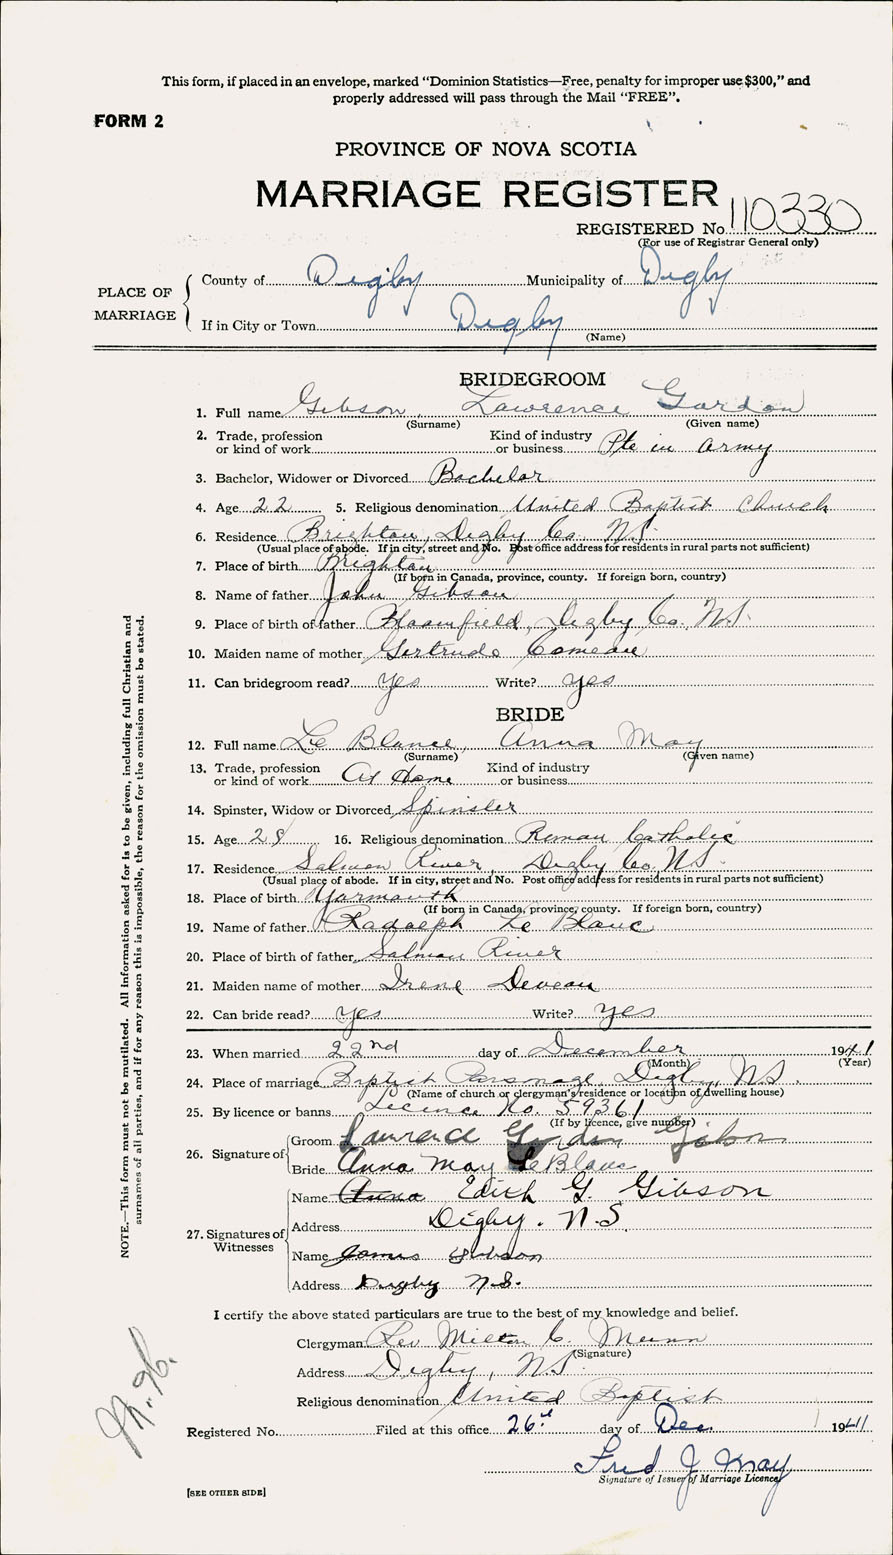 This form, if placed in an envelope, marked “Dominion Statistics—Free, penalty for improper use $300,” and
properly addressed will pass through the Mail “FREE”.
FORM 2
PROVINCE OF NOVA SCOTIA
MARRIAGE REGISTER
REGISTERED No. 110330
(For use of Registrar General only)
PLACE OF MARRIAGE
County of Digby Municipality of Digby
If in City or Town Digby
(Name)
BRIDEGROOM
1. Full name Gibson, Lawrence Gordon
(Surname) (Given name)
2. Trade, profession or kind of work Kind of industry or business Pte in Army
3. Bachelor, Widower or Divorced Bachelor
4. Age 22 5. Religious denomination United Baptist Church
6. Residence Brighton, Digby Co. N.S.
(Usual place of abode. If in city, street and No. Post office address for residents in rural parts not sufficient)
7. Place of birth Brighton
(If born in Canada, province, county. If foreign born, country)
8. Name of father John Gibson
9. Place of birth of father Bloomfield, Digby Co., N.S.
10. Maiden name of mother Gertrude Comeau
11. Can bridegroom read? Yes Write? Yes
BRIDE
12. Full name Le Blanc, Anna May
(Surname) (Given name)
13. Trade, profession or kind of work At Home Kind of industry or business
14. Spinster, Widow or Divorced Spinster
15. Age 16. Religious denomination Roman Catholic
17. Residence Salmon River, Digby Co. N.S.
(Usual place of abode. If in city, street and No. Post office address for residents in rural parts not sufficient)
18. Place of birth Yarmouth
(If born in Canada, province, county. If foreign born, country)
19. Name of father Radolph Le Blanc
20. Place of birth of father Salmon River
21. Maiden name of mother Irene Deveau
22. Can bride read? Yes Write? Yes
23. When married 22nd day of December 1941
(Month) (Year)
24. Place of marriage Baptist Parsonage Digby, N.S.
(Name of church or clergyman's residence or location of dwelling house)
25. By licence or banns Licence No. 59361
(If by licence, give number)
26. Signature of
Groom Lawrence Gordon Gibson
Bride Anna May LeBlanc
27. Signatures of Witnesses
Name Anna Edith G. Gibson
Address Digby. N.S
Name James Gibson
Address Digby N.S.
I certify the above stated particulars are true to the best of my knowledge and belief.
Clergyman Rev Milton C. Munn
(Signature)
Address Digby, N.S.
Religious denomination United Baptist
Registered No. Filed at this office 26 day of Dec. 1941
Fred J May
Signature of Issuer of Marriage Licence
[SEE OTHER SIDE]
NOTE.—This form must not be mutilated. All information asked for is to be given, including full Christian and
surnames of all parties, and if for any reason this is impossible, the reason for the omission must be stated.